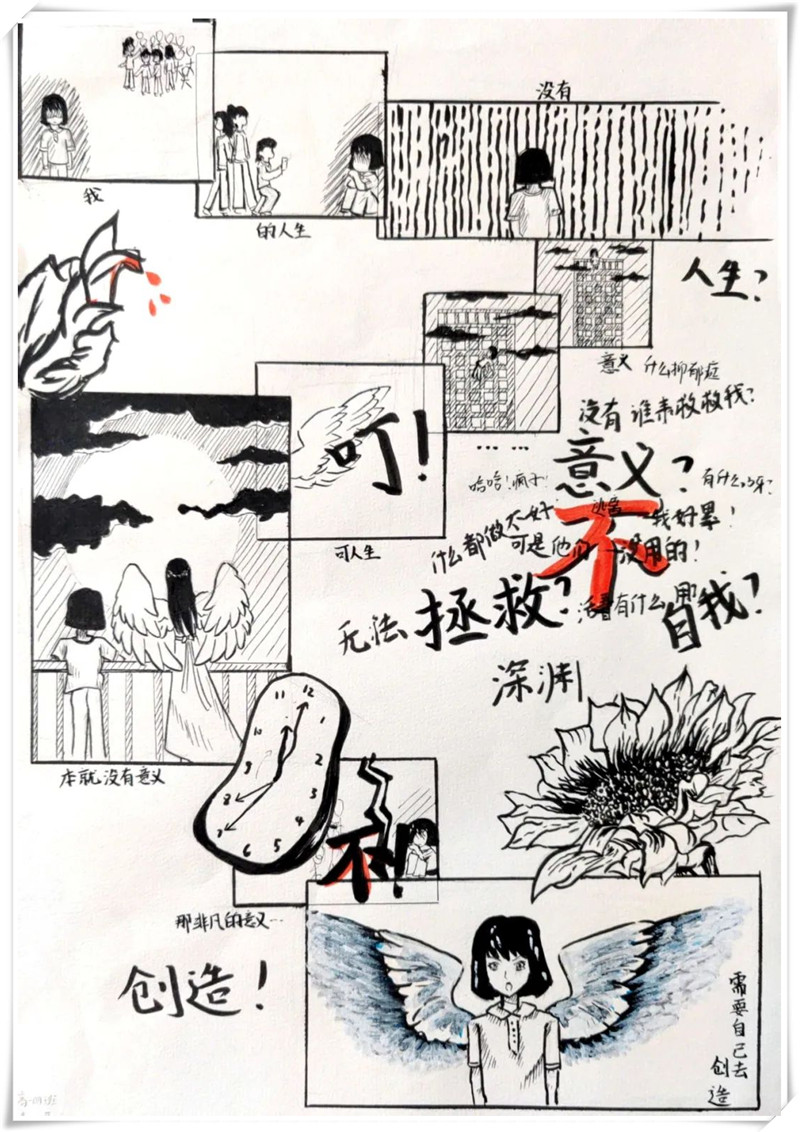 我
的人生
没有
人生?
意义
什么抑郁症
没有 谁来救救我?
叮!
……
意义?
哈哈!疯子!
有什么
不
我好累!
什么都做不好
可是他们
没用的!
可人生
无法 拯救?
活着有什么用
自我?
深渊
本就没有意义
12
11
10
9
8
7
6
5
4
3
2
1
不!
那非凡的意义…
创造!
需要自己去
创造